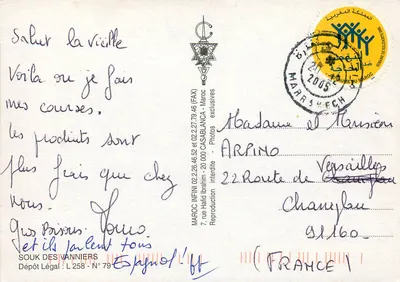 Salut la vieille
Voila ou je fais
mes courses.
les produits sont
plus frais que chez
nous.
Gros Bisous.
et ils parlent tous
Espagnol!
SOUK DES VANNIERS
Dépôt Légal : L 258 - N° 79
MAROC INFINI 02.2.26.46.82 et 02.2.27.79.46 (FAX)
7, rue Hafid Ibrahim - 20 000 CASABLANCA - Maroc
Reproduction interdite - Photos exclusives
المملكة المغربية
2005
MARRAKECH
Madame et Monsieur
ARPINO
22 Route de Versailles
Champlan
91160
(FRANCE)